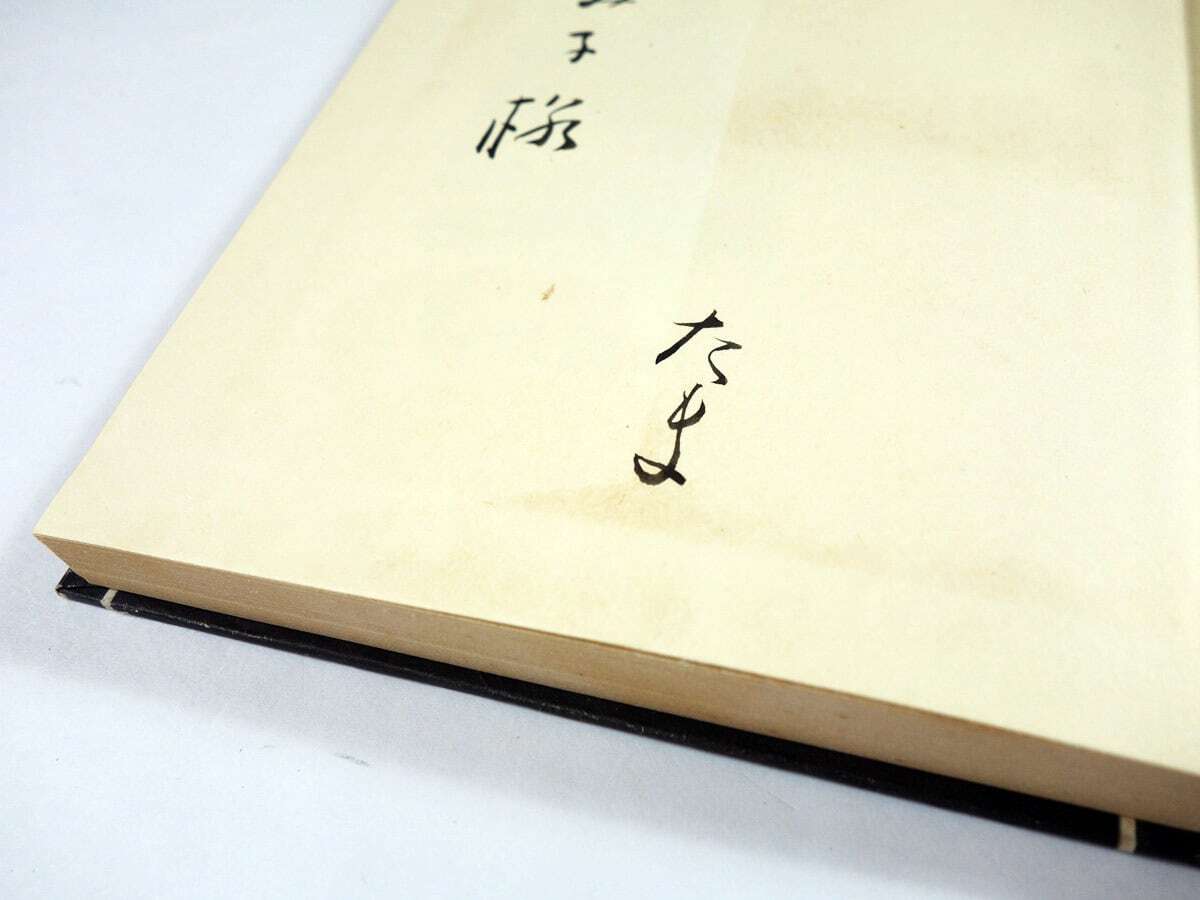 子様
たま